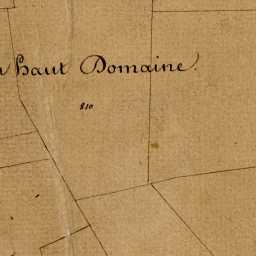 haut Domaine.
810